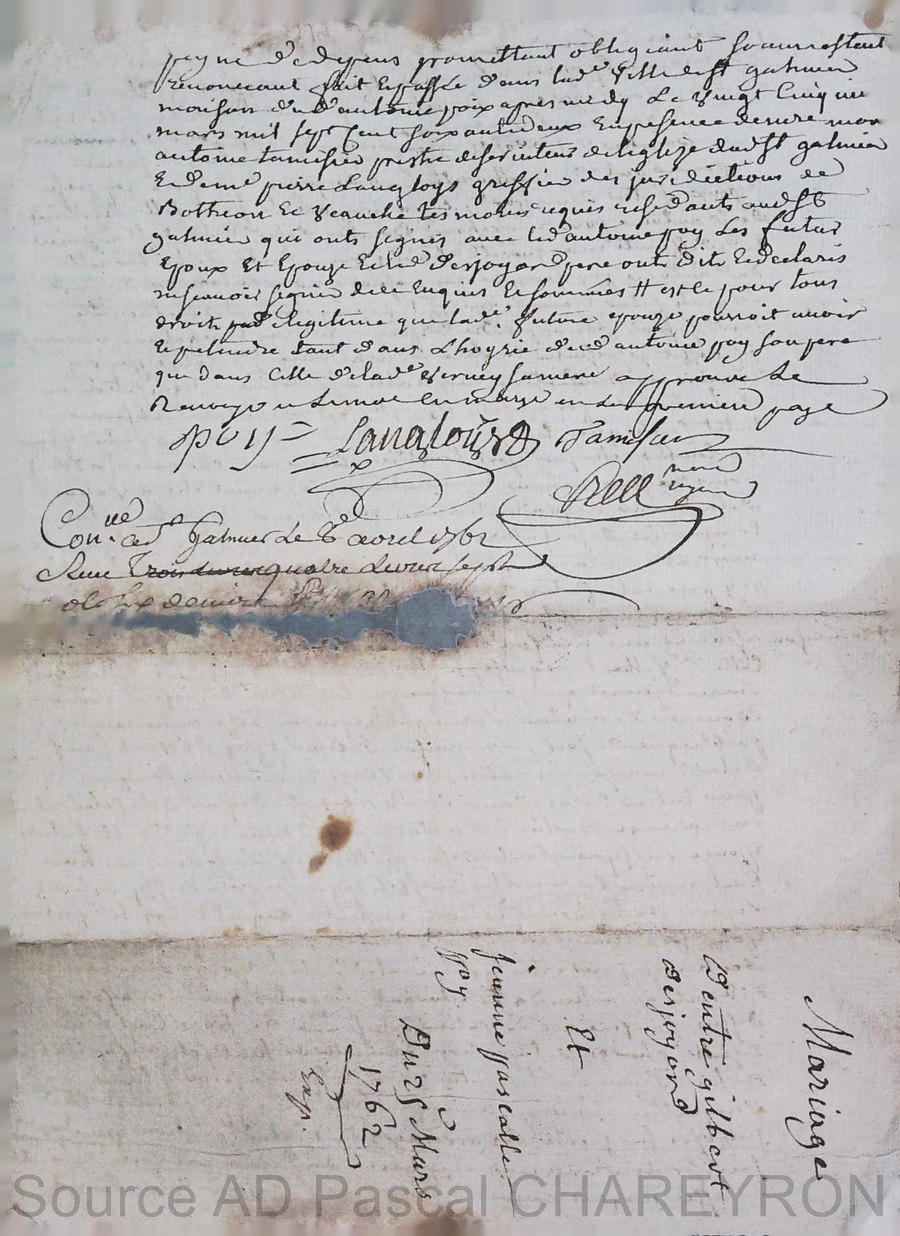 peyne de depens promettant obligeant soumestant
renoncant fait et passée dans lad.e Ville de st galmier
maison dud antoine poix apres midy Le Vingt Cinq me
mars mil sept Cent soixantedeux En presence de mre
antoine tamisier prestre desserviteur de leglize dud St galmier
Et de me pierre Langloys greffier des jurisdictions de
Botheon Et Veauche tesmoins requis residants aud St
galmier qui onts signés avec led antoine poy Les futur
Epoux Et Epouze Et led desjoyand pere onts dit Et declarés
ne scavoir signer de ce Enquis Et sommés # est ce pour tous
droits legitime que lad.e future epouze pourroit avoir
Et pretendre tant dans Lhoyrie dud antoine poy son pere
que dans Celle de lad.e Verney sa mere approuve Le
Renvoy en marge en La premiere page
poy Langloys Tamisier
Con.lle a st Galmier Le 8e avril 1762
Receu quatre Livres sept
Mariage
D'entre gilbert
Desjoyand
Et
jeanne pascalle
Poy
Du 25 Mars
1762
Exp.
Source AD Pascal CHAREYRON